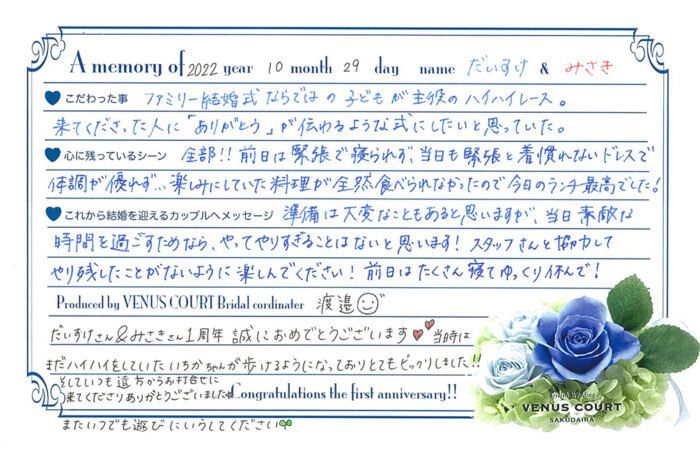 A memory of 2022 year 10 month 29 day name だいすけ & みさき
こだわった事 ファミリー結婚式ならではの子どもが主役のハイハイレース。
来てくださった人に「ありがとう」が伝わるような式にしたいと思っていた。
心に残っているシーン 全部!! 前日は緊張で寝られず、当日も緊張と着慣れないドレスで
体調が優れず… 楽しみにしていた料理が全然食べられなかったので今日のランチ最高でした!
これから結婚を迎えるカップルへメッセージ 準備は大変なこともあると思いますが、当日素敵な
時間を過ごすためなら、やってやりすぎることはないと思います! スタッフさんと協力して
やり残したことがないように楽しんでください! 前日はたくさん寝てゆっくり休んで!
Produced by VENUS COURT Bridal cordinater 渡邉
だいすけさん&みさきさん1周年 誠におめでとうございます 当時は
まだハイハイをしていたいちかちゃんが歩けるようになっておりとてもビックリしました!!
そしていつも遠方からお打合せに
来てくださりありがとうございました Congratulations the first anniversary!!
またいつでも遊びにいらしてください
VENUS COURT
SAKUDAIRA